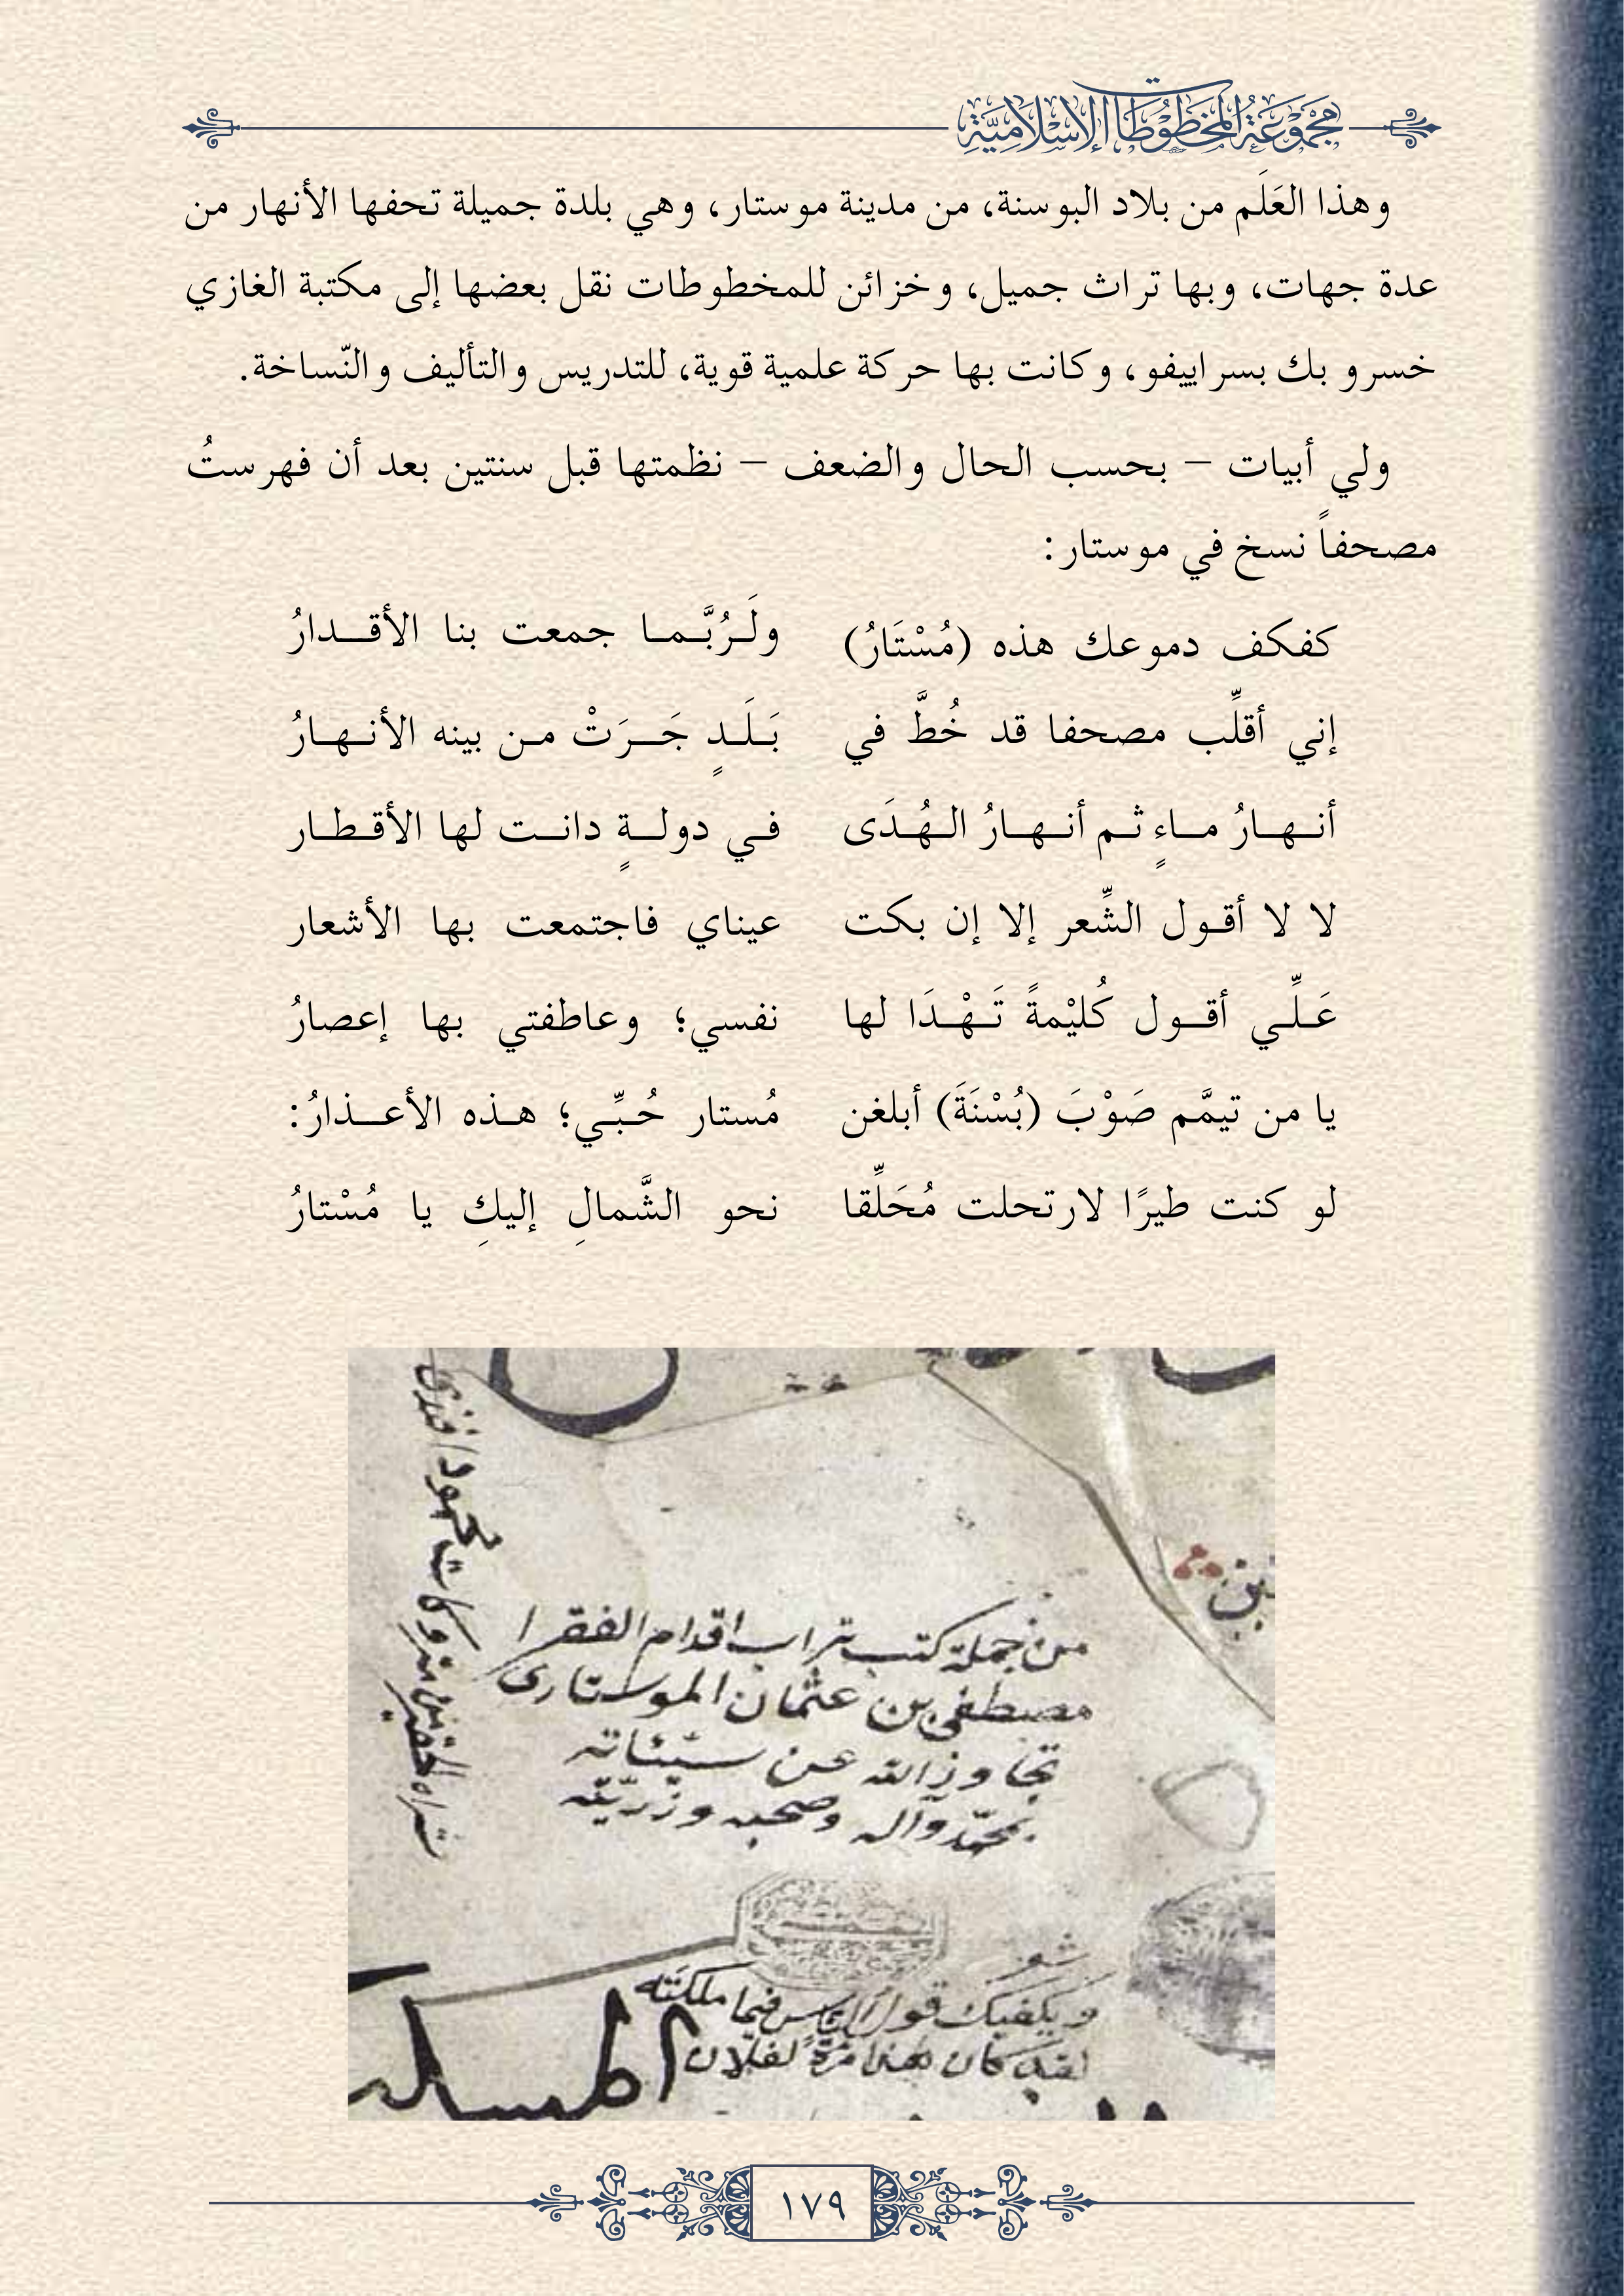 مجموعة المخطوطات الإسلامية
وهذا العَلَم من بلاد البوسنة، من مدينة موستار، وهي بلدة جميلة تحفها الأنهار من
عدة جهات، وبها تراث جميل، وخزائن للمخطوطات نقل بعضها إلى مكتبة الغازي
خسرو بك بسراييفو، وكانت بها حركة علمية قوية، للتدريس والتأليف والنّساخة.
ولي أبيات – بحسب الحال والضعف – نظمتها قبل سنتين بعد أن فهرستُ
مصحفاً نسخ في موستار:
كفكف دموعك هذه (مُسْتَارُ) ولَرُبَّما جمعت بنا الأقدارُ
إني أقلِّب مصحفا قد خُطَّ في بَلَدٍ جَرَتْ من بينه الأنهارُ
أنهارُ ماءٍ ثم أنهارُ الهُدَى في دولةٍ دانت لها الأقطار
لا لا أقول الشِّعر إلا إن بكت عيناي فاجتمعت بها الأشعار
عَلِّي أقول كُليْمةً تَهْدَا لها نفسي؛ وعاطفتي بها إعصارُ
يا من تيمَّم صَوْبَ (بُسْنَةَ) أبلغن مُستار حُبِّي؛ هذه الأعذارُ:
لو كنت طيرًا لارتحلت مُحَلِّقا نحو الشَّمالِ إليكِ يا مُسْتارُ
من جملة كتب تراب اقدام الفقرا
مصطفى بن عثمان الموستارى
تجاوز الله عن سيئاته
بمحمّد وآله وصحبه وذريّته
شعر
ويكفيك قول الناس فيما ملكته
لقد كان هذا مرّةً لفلان
١٧٩